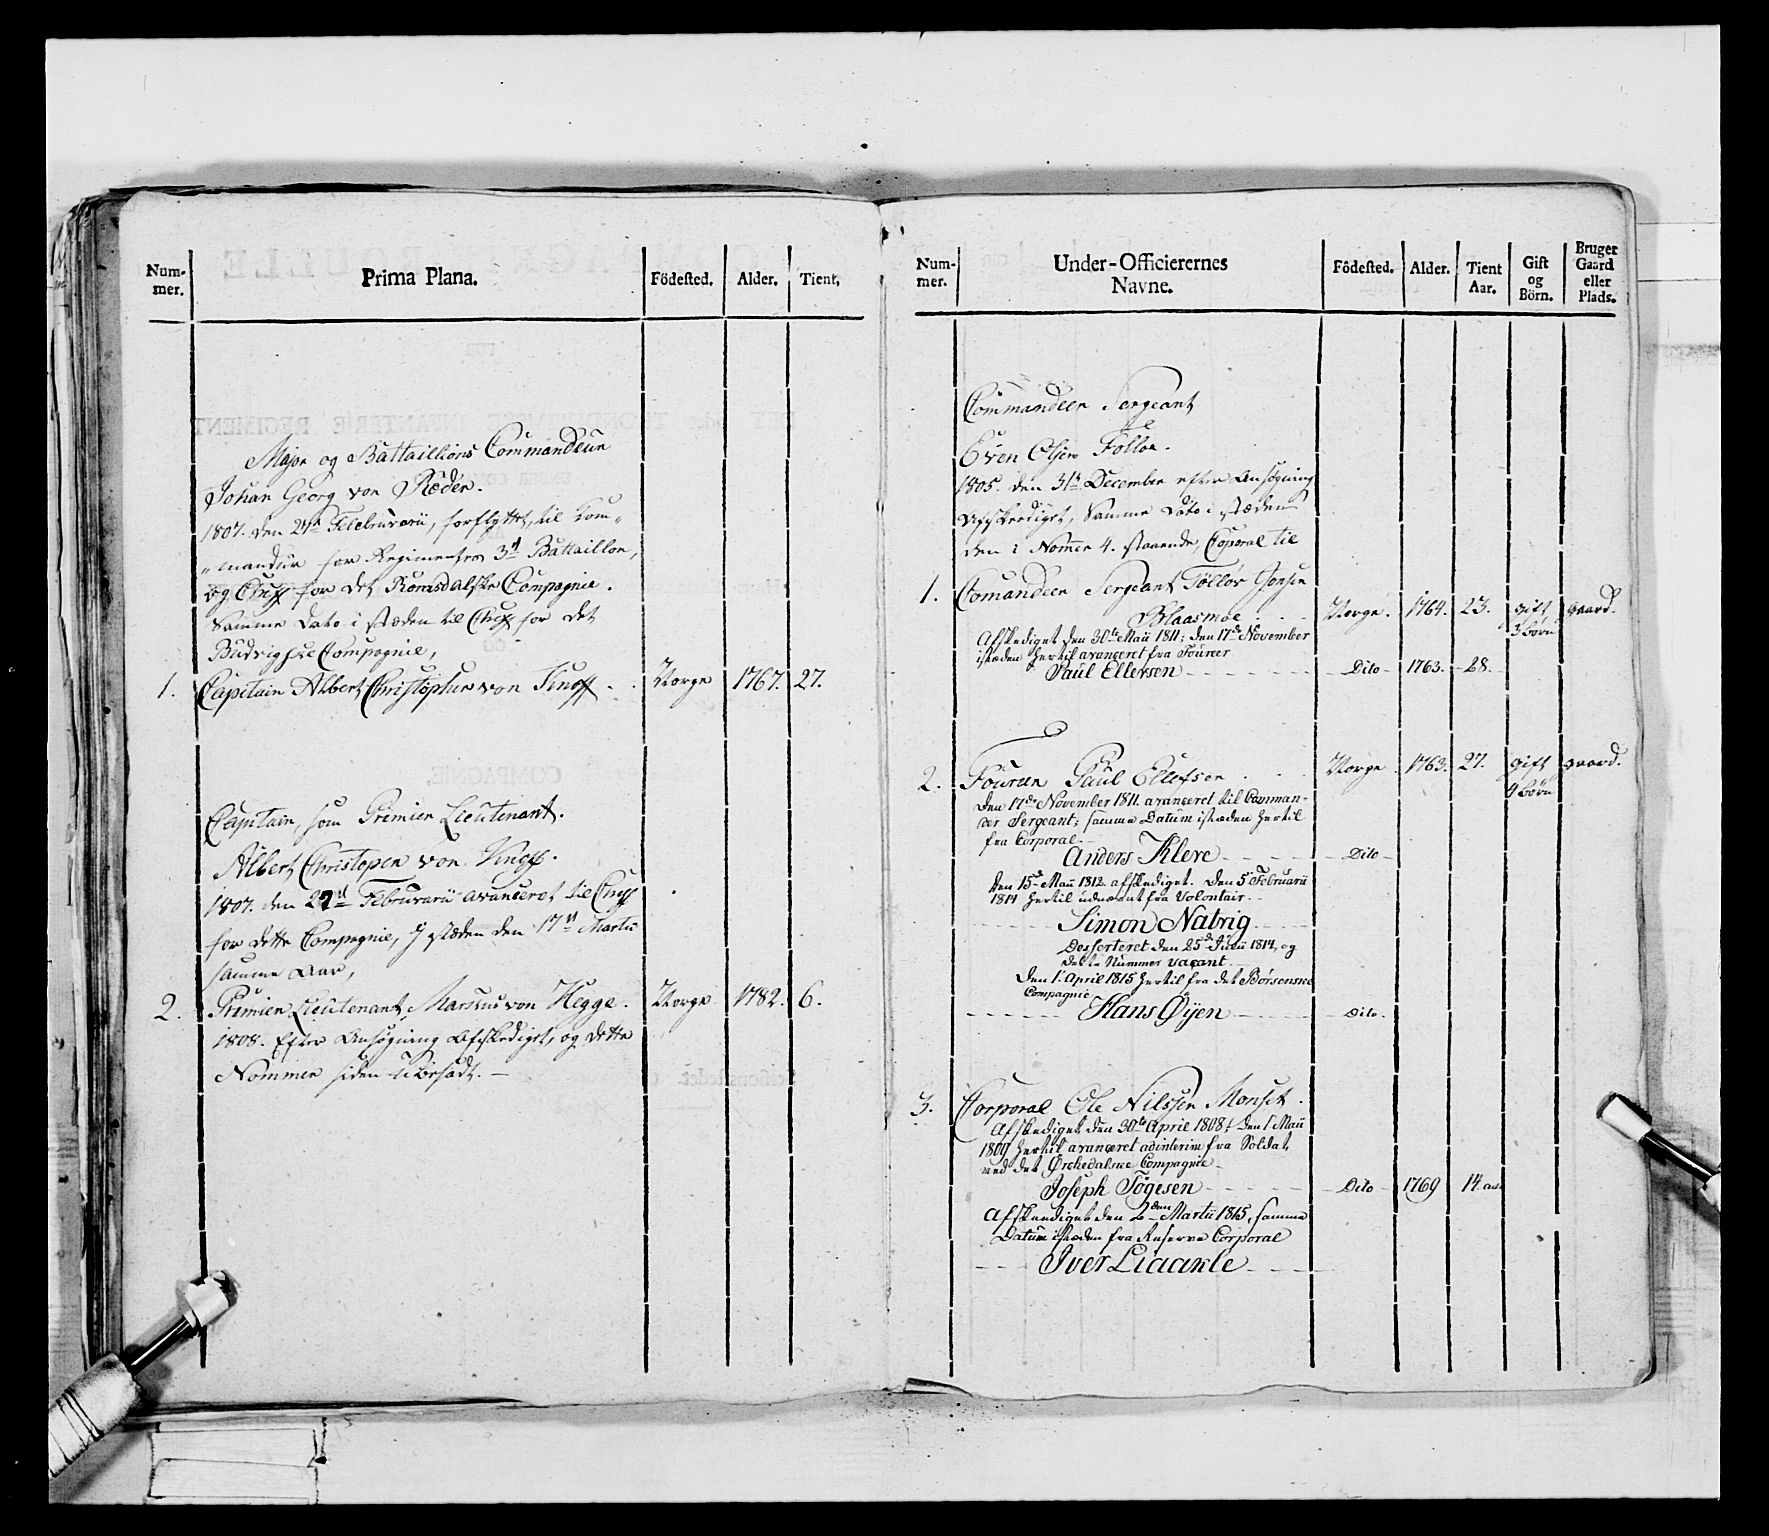 Num-
mer.
Prima Plana.
Födested.
Alder.
Tient.
Major og Battaillions Commandeur
Johan Georg von Ræder.
1807. den 27de Februarii, forflyttet, til Kom„
„mandeur for Regimentes 3de Battaillon,
og Cheff for det Romsdalske Compagnie.
Samme Dato i stæden til Cheff for det
Compagnie,
1. Capitain Albert Christopher von - - Norge 1767. 27.
Capitain, som Premier Lieutenant.
Albert Christopher von
1807. den 27de Februarii avanceret til Cheff
for dette Compagnie, I stæden den 17de Martii
samme Aar,
2. Premier Lieutenant, Marcus von Hegge. Norge. 1782. 6.
1808. Efter Ansøgning Afskediget, og dette
Nommer siden ubesadt. —
Num-
mer.
Under-Officierernes
Navne.
Födested.
Alder.
Tient
Aar.
Gift
og
Börn.
Bruger
Gaard
eller
Plads.
Commandeer Sergeant
Even Olsen Folloe.
1805. den 31te December efter Ansøgning
Afskediget, Samme Dato i stæden
den i Nomer 4. staaende, Coporal til
1. Comandeer Sergeant Tølløv Jonsen
Blaasmoe . . . Norge. 1764. 23. gift 3 börn gaard.
Afskediget den 30te Maii 1811; den 17de November
istæden hertil avanceret fra Foureer
Paul Ellevsen - - - - - - Dito - 1763. - 28.
2. Foureer Paul Ellefsen . . Norge 1763. 27. gift 4 börn gaard.
Den 17de November 1811. avanceret til Comman-
der Sergeant; samme Datum istæden hertil
fra Corporal. -
Anders Kleve - - - - Dito -
Den 15de Maii 1812. afskediget. Den 5te Februarii
1814 hertil udnævnt fra Volontair. -
- - - - Simon Natrig - - - -
Desserteret den 25de Junii 1814, og
dette Nummer vacant. -
Den 1. April 1815 hertil fra det Børsenske
Compagnie
- - - - - - Hans Øyen - - - - - Dito -
3. Corporal Ole Nilssen Monset .
Afskediget den 30te April 1808; Den 1 Maii
1809 hertil avanceret adinterim fra Soldat
ved det Ørkedalske Compagnie -
Joseph Tøgesen - - - - - Dito - 1769 14. aar
Afskediget den 2den Martii 1815, samme
Datum istæden fra Reserve Corporal
- - - Iver Liaakle - - - -